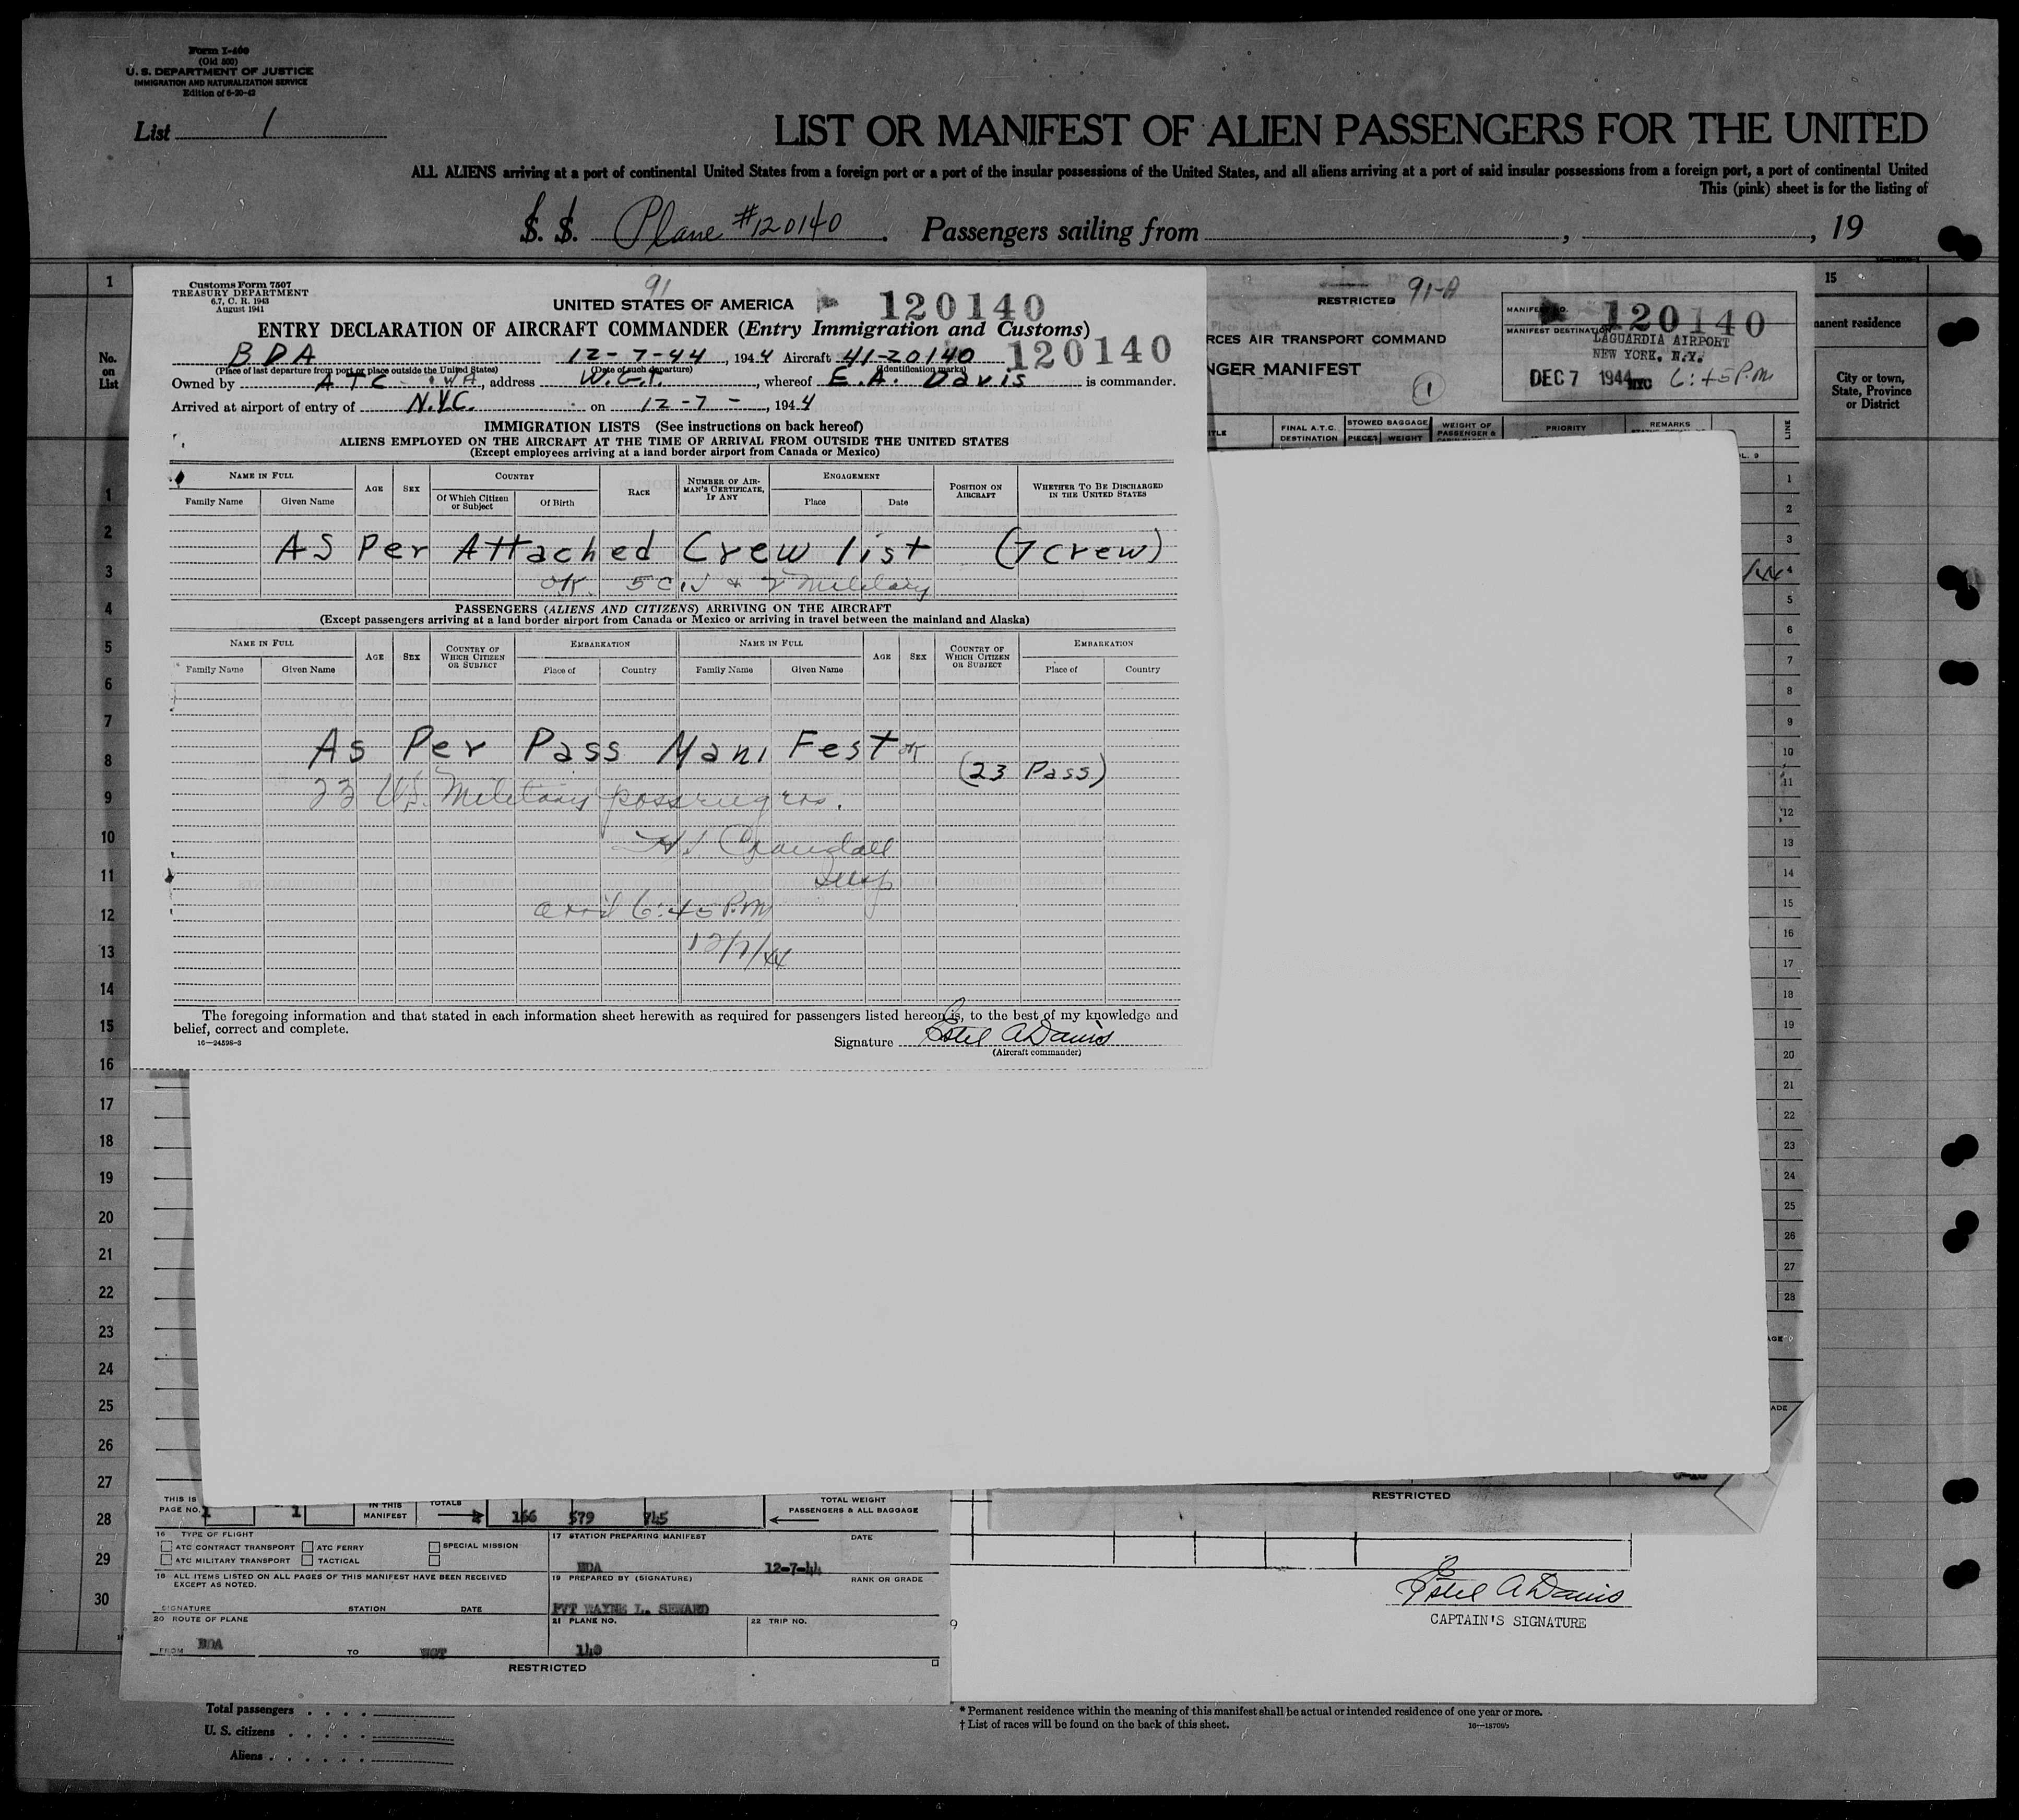 Form I-460
(Old 500)
U. S. DEPARTMENT OF JUSTICE
IMMIGRATION AND NATURALIZATION SERVICE
Edition of 6-20-43
List 1
LIST OR MANIFEST OF ALIEN PASSENGERS FOR THE UNITED
ALL ALIENS arriving at a port of continental United States from a foreign port or a port of the insular possessions of the United States, and all aliens arriving at a port of said insular possessions from a foreign port, a port of continental United
This (pink) sheet is for the listing of
S. S. Plane #120140. Passengers sailing from , , 19
1
No. on List
Customs Form 7507
TREASURY DEPARTMENT
6.7, C. R. 1943
August 1941
91
UNITED STATES OF AMERICA 120140
ENTRY DECLARATION OF AIRCRAFT COMMANDER (Entry Immigration and Customs)
120140
BDA 12-7-44, 194 4 Aircraft 41-20140
(Place of last departure from port or place outside the United States) (Date of such departure) (Identification marks)
Owned by ATC - TWA, address W.G.T., whereof E.A. Davis is commander.
Arrived at airport of entry of N.Y.C. on 12-7-, 194 4
IMMIGRATION LISTS (See instructions on back hereof)
ALIENS EMPLOYED ON THE AIRCRAFT AT THE TIME OF ARRIVAL FROM OUTSIDE THE UNITED STATES
(Except employees arriving at a land border airport from Canada or Mexico)
NAME IN FULL AGE SEX COUNTRY RACE NUMBER OF AIRMAN'S CERTIFICATE, IF ANY ENGAGEMENT POSITION ON AIRCRAFT WHETHER TO BE DISCHARGED IN THE UNITED STATES
Family Name Given Name Of Which Citizen or Subject Of Birth Place Date
AS Per Attached Crew list (7 crew)
OK. 5 & 2 Military
PASSENGERS (ALIENS AND CITIZENS) ARRIVING ON THE AIRCRAFT
(Except passengers arriving at a land border airport from Canada or Mexico or arriving in travel between the mainland and Alaska)
NAME IN FULL AGE SEX COUNTRY OF WHICH CITIZEN OR SUBJECT EMBARKATION NAME IN FULL AGE SEX COUNTRY OF WHICH CITIZEN OR SUBJECT EMBARKATION
Family Name Given Name Place of Country Family Name Given Name Place of Country
As Per Pass Mani Fest OK (23 Pass)
23 U.S. Military passengers.
H.J. Crandall
Insp
arrd 6:45 P.M
12/7/44
The foregoing information and that stated in each information sheet herewith as required for passengers listed hereon is, to the best of my knowledge and
belief, correct and complete.
16—24598-3
Signature Estel A Davis
(Aircraft commander)
RESTRICTED 91-A
RCES AIR TRANSPORT COMMAND
NGER MANIFEST
1
MANIFEST NO. 120140
MANIFEST DESTINATION
LAGUARDIA AIRPORT
NEW YORK, N.Y.
DEC 7 1944 NYC 6:45 P.M
TLE FINAL A.T.C. DESTINATION STOWED BAGGAGE PIECES WEIGHT WEIGHT OF PASSENGER & PRIORITY REMARKS LINE
15
manent residence
City or town, State, Province or District
1
2
3
4
5
6
7
8
9
10
11
12
13
14
15
16
17
18
19
20
21
22
23
24
25
26
27
28
29
30
1
2
3
4
5
6
7
8
9
10
11
12
13
14
15
16
17
18
19
20
21
22
23
24
25
26
27
28
AGE
ADE
RESTRICTED
THIS IS PAGE NO. 1 1 IN THIS MANIFEST TOTALS 166 579 745 TOTAL WEIGHT PASSENGERS & ALL BAGGAGE
16 TYPE OF FLIGHT
ATC CONTRACT TRANSPORT ATC FERRY SPECIAL MISSION
ATC MILITARY TRANSPORT TACTICAL
17 STATION PREPARING MANIFEST DATE
BDA 12-7-44
18 ALL ITEMS LISTED ON ALL PAGES OF THIS MANIFEST HAVE BEEN RECEIVED EXCEPT AS NOTED.
SIGNATURE STATION DATE
19 PREPARED BY (SIGNATURE) RANK OR GRADE
PVT WAYNE L. SEWARD
20 ROUTE OF PLANE
FROM BDA TO WGT
21 PLANE NO.
140
22 TRIP NO.
RESTRICTED
9
Estel A Davis
CAPTAIN'S SIGNATURE
Total passengers
U. S. citizens
Aliens
* Permanent residence within the meaning of this manifest shall be actual or intended residence of one year or more.
† List of races will be found on the back of this sheet.